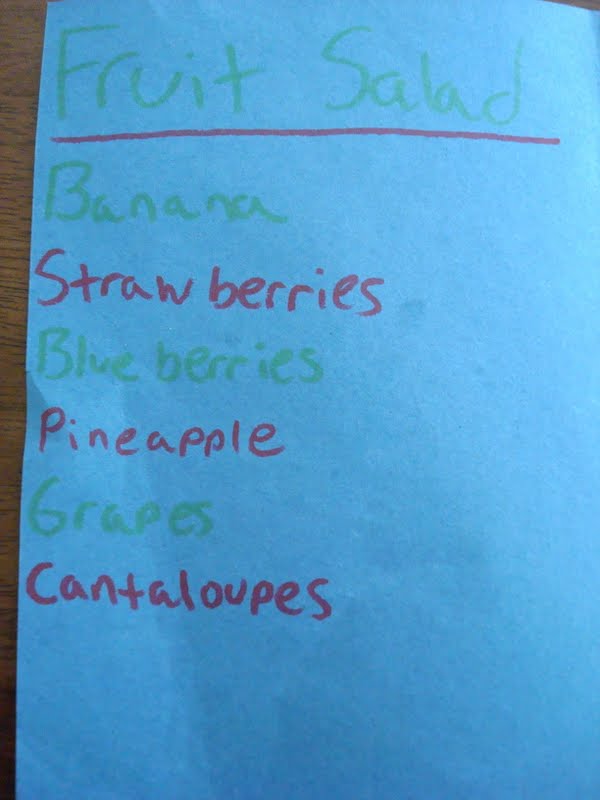 Fruit Salad
Banana
Strawberries
Blueberries
Pineapple
Grapes
Cantaloupes